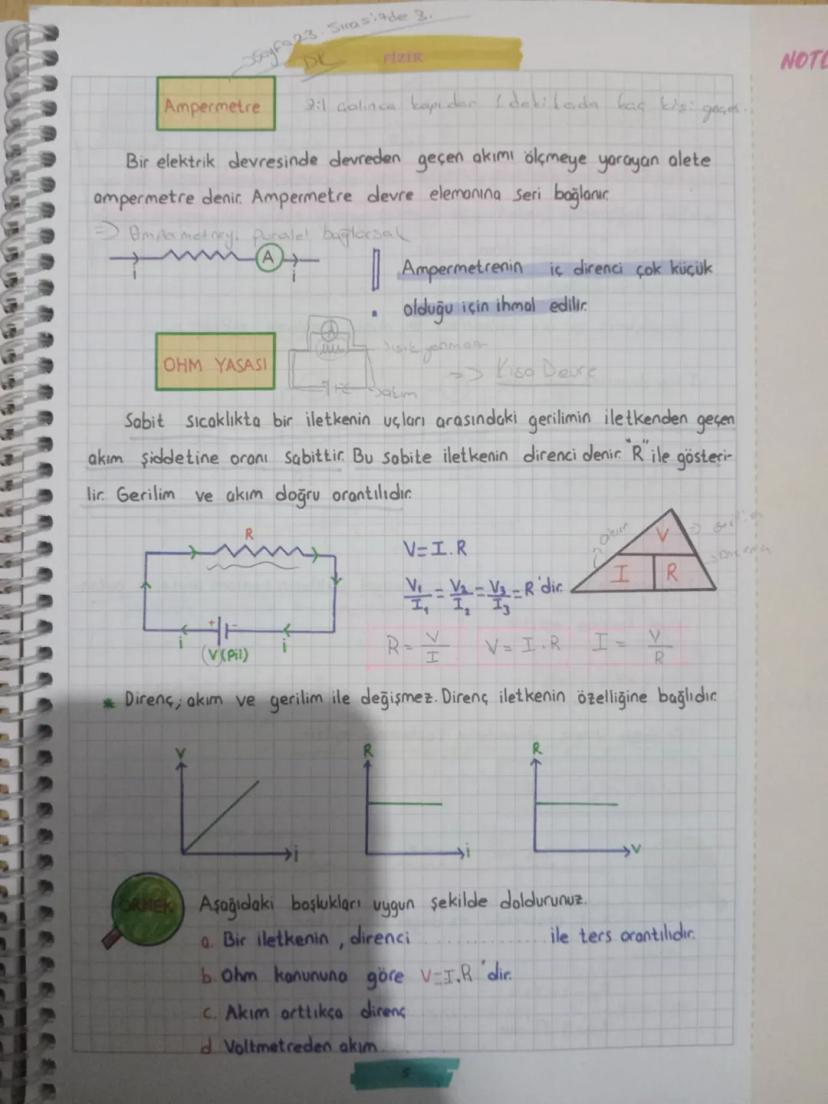 Sayfa 23. Sırasitde 3.
DK
FİZİK
NOTL
Ampermetre
Zil çalınca kapıdan 1 dakikada kaç kişi geçer.
Bir elektrik devresinde devreden geçen akımı ölçmeye yarayan alete
ampermetre denir. Ampermetre devre elemanına seri bağlanır.
=> paralel bağlarsak
A
i i
Ampermetrenin iç direnci çok küçük
olduğu için ihmal edilir.
OHM YASASI
=> Kısa Devre
Sabit sıcaklıkta bir iletkenin uçları arasındaki gerilimin iletkenden geçen
akım şiddetine oranı sabittir. Bu sabite iletkenin direnci denir. "R" ile gösteri-
lir. Gerilim ve akım doğru orantılıdır.
R
+ -
i i
(V(Pil)
V=I.R
V₁/I₁ = V₂/I₂ = V₃/I₃ = R'dir.
akım
V
I R
R = V/I V = I.R I = V/R
* Direnç; akım ve gerilim ile değişmez. Direnç iletkenin özelliğine bağlıdır.
V i
R i
R V
ÖRNEK
Aşağıdaki boşlukları uygun şekilde doldurunuz.
a. Bir iletkenin, direnci .............. ile ters orantılıdır.
b. Ohm kanununa göre V=I.R 'dir.
c. Akım arttıkça direnç
d. Voltmetreden akım
5